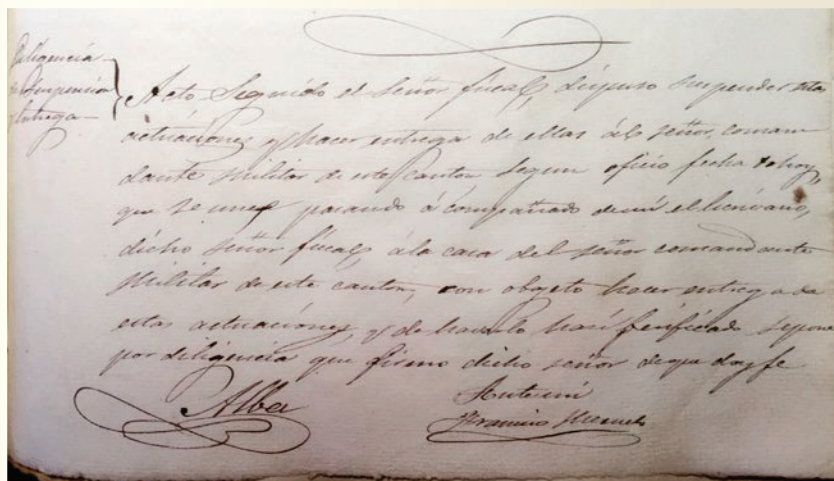 Diligencia
de Suspencion
y Entrega
Acto Seguido el Señor fiscal, dispuso suspender estas
actuaciones y hacer entrega de ellas álˢ señor, coman
dante Militar de este Canton segun oficio fecha de hoy,
que se une pasando á compañado de mi el Escrivano,
dicho Señor fiscal, ála casa del Señor comandante
Militar de este Canton, con objeto hacer entrega de
estas actuaciónes, y de haverlo hasi ferificado se pone
por diligencia que firmo dicho señor de que doy fe
Alba
Ante mi
Francisco